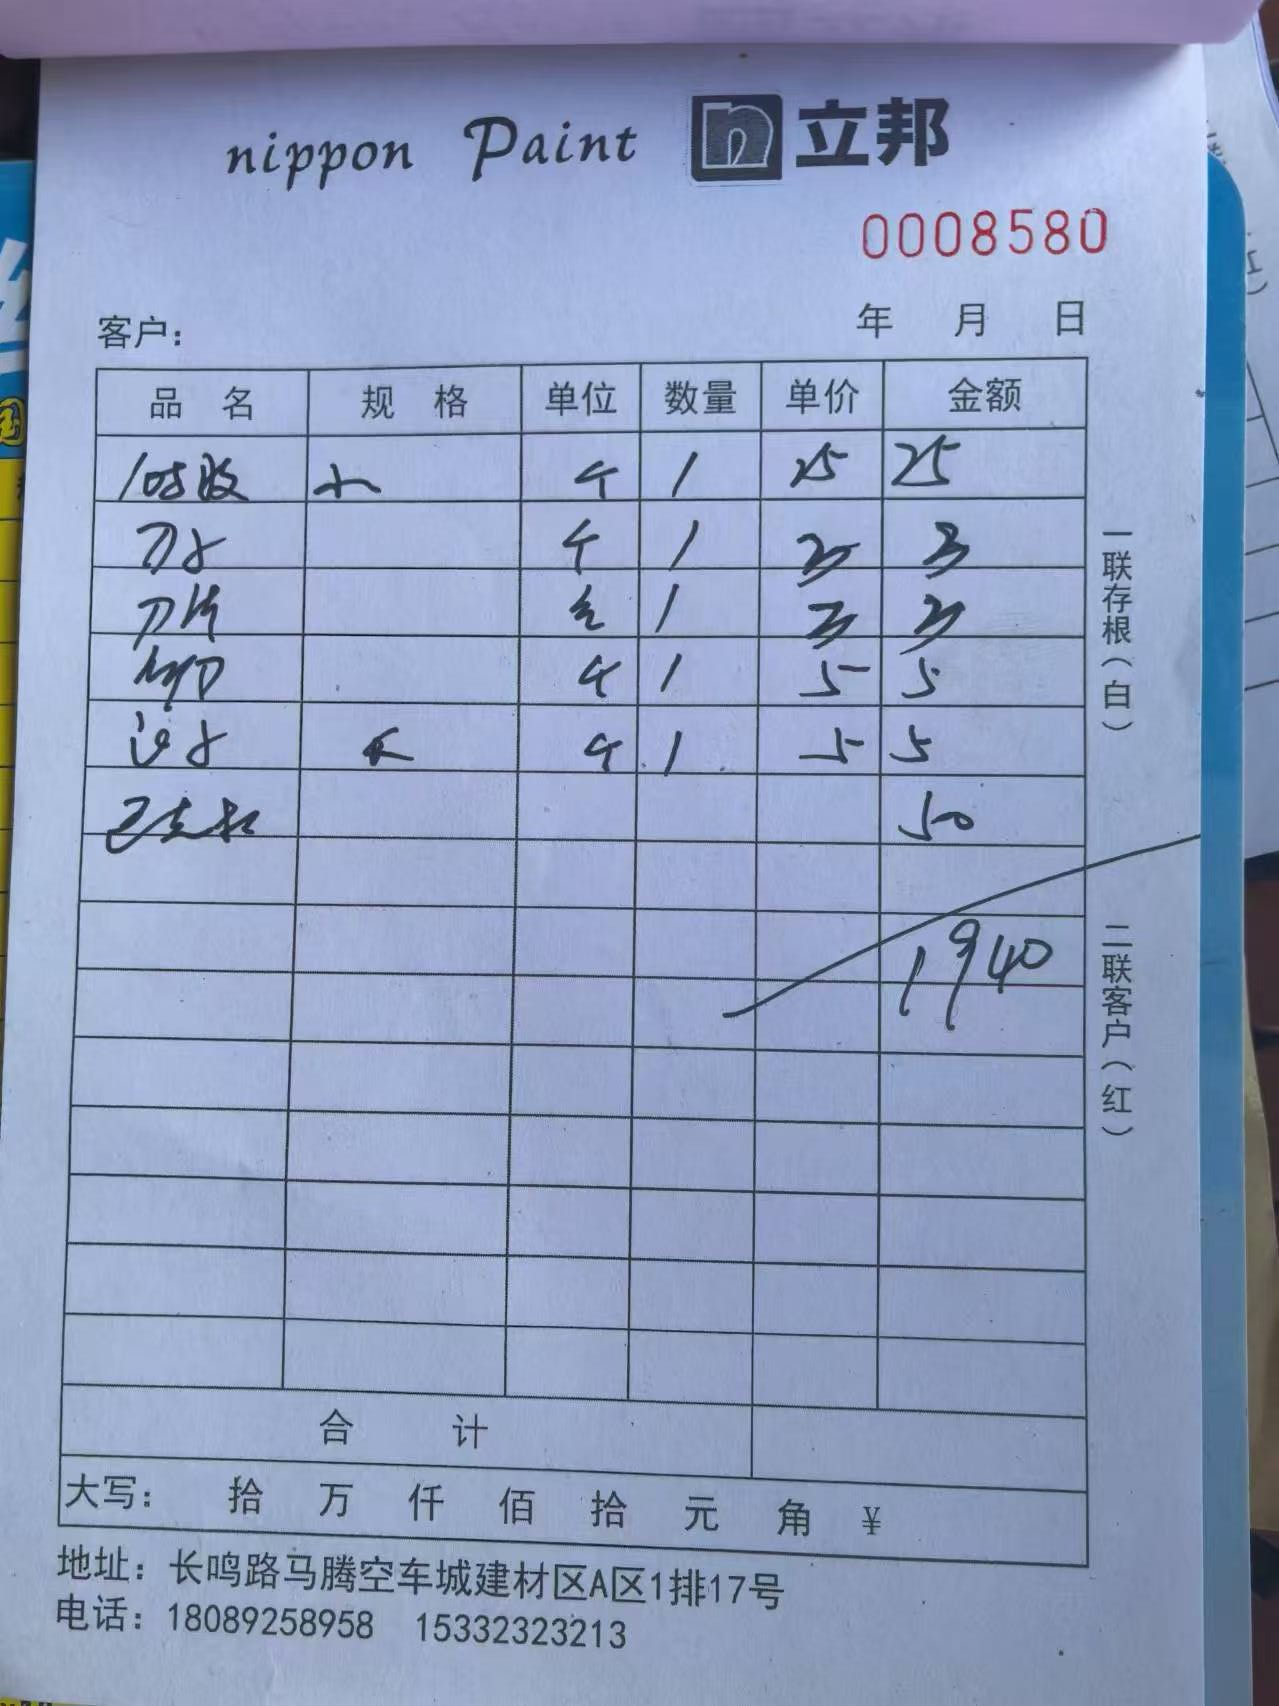 nippon Paint 立邦
0008580
客户： 年 月 日
品名 规格 单位 数量 单价 金额
108胶 小 个 1 25 25
刀子 个 1 3 3
刀片 1 3 3
个 1 5 5
个 1 5 5
50
1940
合计
大写： 拾 万 仟 佰 拾 元 角 ¥
地址：长鸣路马腾空车城建材区A区1排17号
电话：18089258958 15332323213
一联存根（白）
二联客户（红）